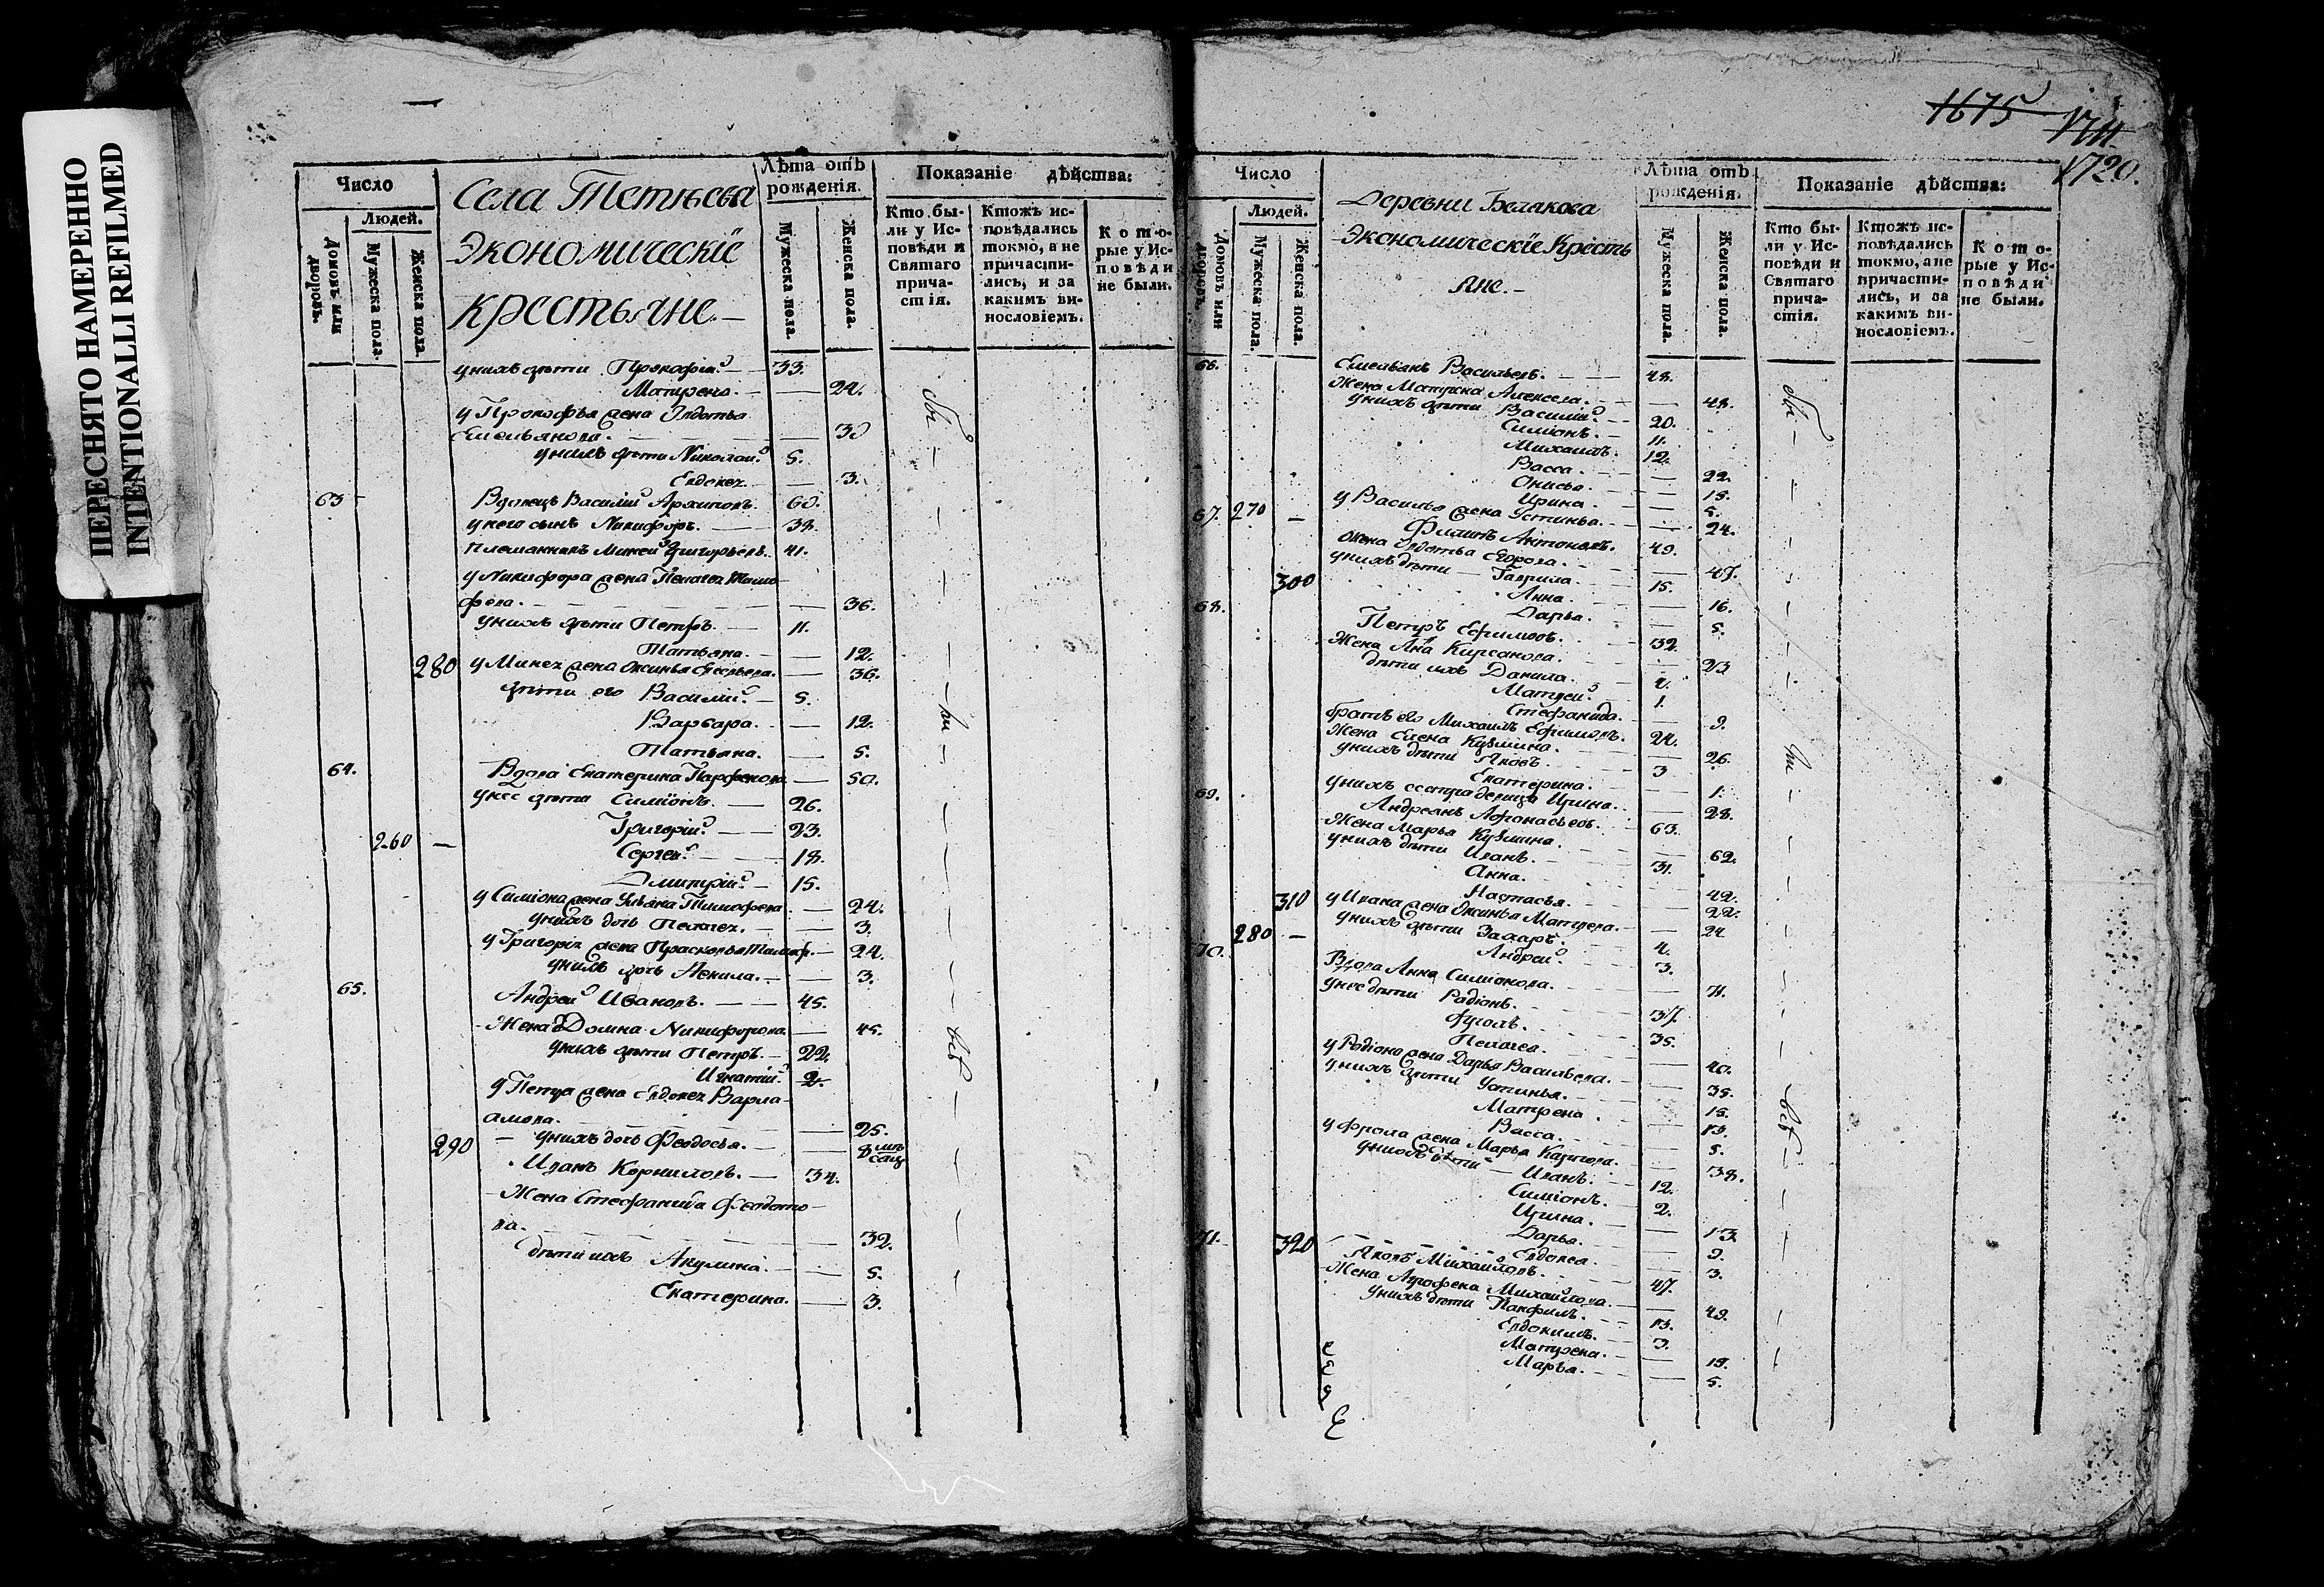 ПЕРЕСНЯТО НАМЕРЕННО
INTENTIONALLI REFILMED
Число
Людей.
Домовъ или дворовъ.
Мужеска пола.
Женска пола.
Села Тетѣева
Экономическіе
Крестьяне.—
Лѣта отъ рожденія.
Мужеска пола.
Женска пола.
Показаніе дѣйства:
Кто бы-
ли у Ис-
повѣди и
Святаго
прича-
стія.
Ктожъ ис-
повѣдались
токмо, а не
причасти-
лись, и за
какимъ ви-
нословіемъ.
Кото-
рые у Ис-
повѣди
не были.
у нихъ дѣти Прокофій — 33.
Матрена — 24.
у Прокофья жена Авдотья
Емельянова. — 30
у нихъ дѣти Николай 5.
Евдокея — 3.
63 Вдовецъ Василій Архиповъ. 60.
у него сынъ Никифоръ. — 38.
племянникъ Миней Григорьевъ. 41.
у Никифора жена Пелагея Тимо-
феева. — 36.
у нихъ дѣти Петръ. — 11.
Татьяна. — 12.
280 у Минея жена Аксинья — 36.
дѣти его Василій — 5.
Варвара. — 12.
Татьяна. — 5.
64. Вдова Екатерина Парфенова — 50.
у нее дѣти Симіонъ. — 26.
Григорій — 23.
260 — Сергей — 18.
Дмитрій — 15.
у Симіона жена Ульяна Тимофеева — 24.
у нихъ дочь Пелагея. — 3.
у Григорія жена Прасковья Тимоф. — 24.
у нихъ дочь Акилина. — 3.
65. Андрей Ивановъ. — 45.
Жена Домна Никифорова — 45.
у нихъ дѣти Петръ. — 22.
Игнатій 2.
у Петра жена Евдокея Варла-
амова. — 25.
290 — у нихъ дочь Феодосья. — 8 мѣсяц
Иванъ Корниловъ. — 34.
Жена Стефанида Феодото-
ва. — 32.
дѣти ихъ Акулина. — 5.
Екатерина. — 3.
обы
ли
всѣ
1675
1711
1720.
Число
Людей.
Домовъ или дворовъ.
Мужеска пола.
Женска пола.
Деревни Белякова
Экономическіе Кресть
яне.—
Лѣта отъ рожденія.
Мужеска пола.
Женска пола.
Показаніе дѣйства:
Кто бы-
ли у Ис-
повѣди и
Святаго
прича-
стія.
Ктожъ ис-
повѣдались
токмо, а не
причасти-
лись, и за
какимъ ви-
нословіемъ.
Кото-
рые у Ис-
повѣди
не были.
66. Емельянъ Васильевъ. — 48.
Жена Матрена Алексеева. — 48.
у нихъ дѣти Василій — 20.
Симіонъ. — 11.
Михаилъ. 12.
Васса. — 22.
Онисья. — 15.
Ирина. — 5.
270 — у Василья жена Устинья. — 24.
67. Филипъ Антоновъ. 49.
жена Авдотья Егорова. — 47.
у нихъ дѣти — Гаврила. — 15.
300 Анна. — 16.
Дарья. — 5.
68. Петръ Ефимовъ. — 32.
Жена Анна Кирсанова. — 23
дѣти ихъ Данила. — 2.
Матвей — 1.
Стефанида. — 9.
братъ его Михаилъ Ефимовъ. 24.
Жена Елена Кузмина. — 26.
у нихъ дѣти Яковъ. — 3
Екатерина. — 1.
у нихъ сестра девица Ирина. — 28.
69. Андреянъ Афонасьевъ. — 63.
Жена Марья Кузмина. — 62.
у нихъ дѣти Иванъ. — 31.
Анна. — 42.
310 Настасья. — 22.
у Ивана жена Аксинья Матвеева. — 24
280 — у нихъ дѣти Захаръ. — 4.
Андрей — 3.
70. Вдова Анна Симіонова. — 71.
у нее дѣти Радіонъ. — 37.
Фролъ. — 35.
Пелагея. — 40.
у Родіона жена Дарья Васильева. — 35.
у нихъ дѣти Устинья. — 15.
Матрена. — 13.
Васса. — 5.
у Фрола жена Марья Карпова. — 38.
у нихъ дѣти — Иванъ. — 12.
Симіонъ. — 2.
Ирина. — 13
Дарья. — 9.
320 Евдокея. — 3.
71. Яковъ Михайловъ. — 47.
Жена Агрофена Михайлова. — 49.
у нихъ дѣти Панфилъ. — 13.
Евдокимъ. — 3.
Матрена. — 15.
Марья. — 5.
обы
ли
всѣ